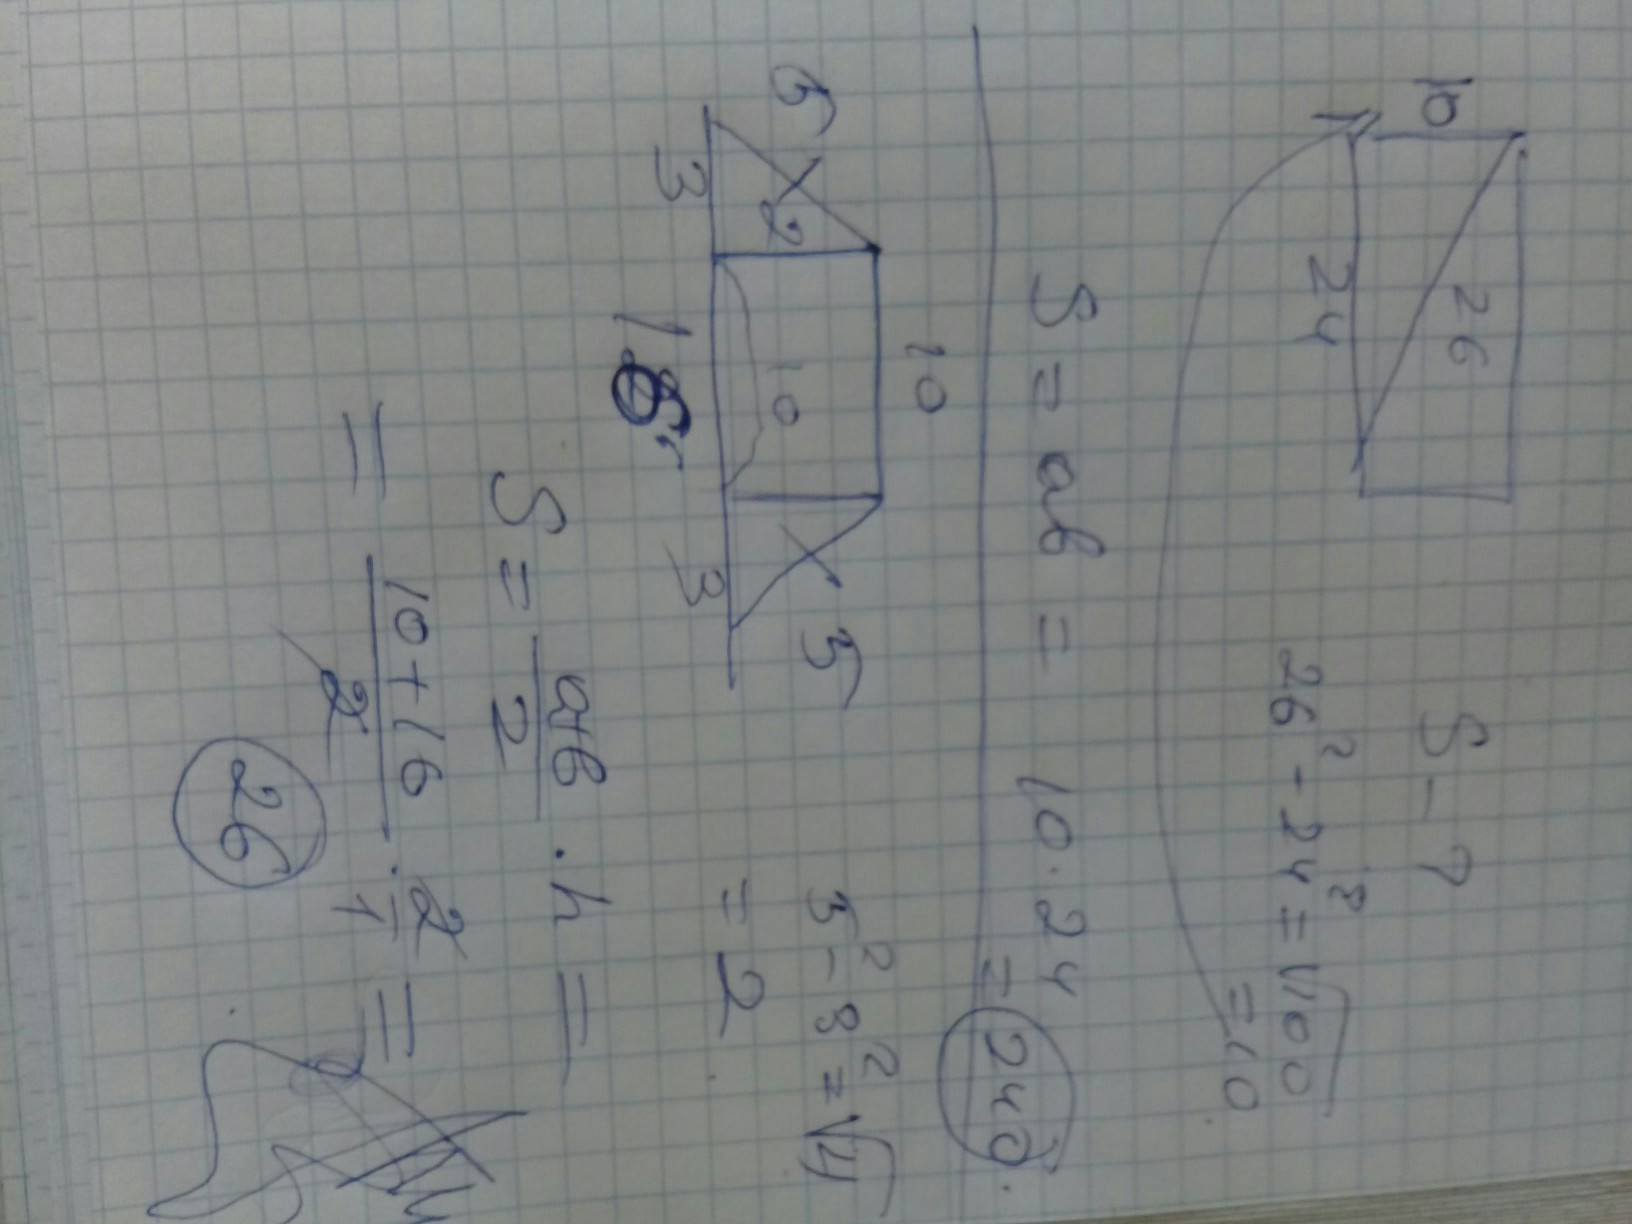 10
26
24
S - ?
26² - 24² = √100
= 10
S = ав = 10 · 24
= 240
10
5
2
10
5
3
16
3
5² - 3² = √4
= 2
S = а+в/2 · h =
= 10+16/2 · 2/1 =
26